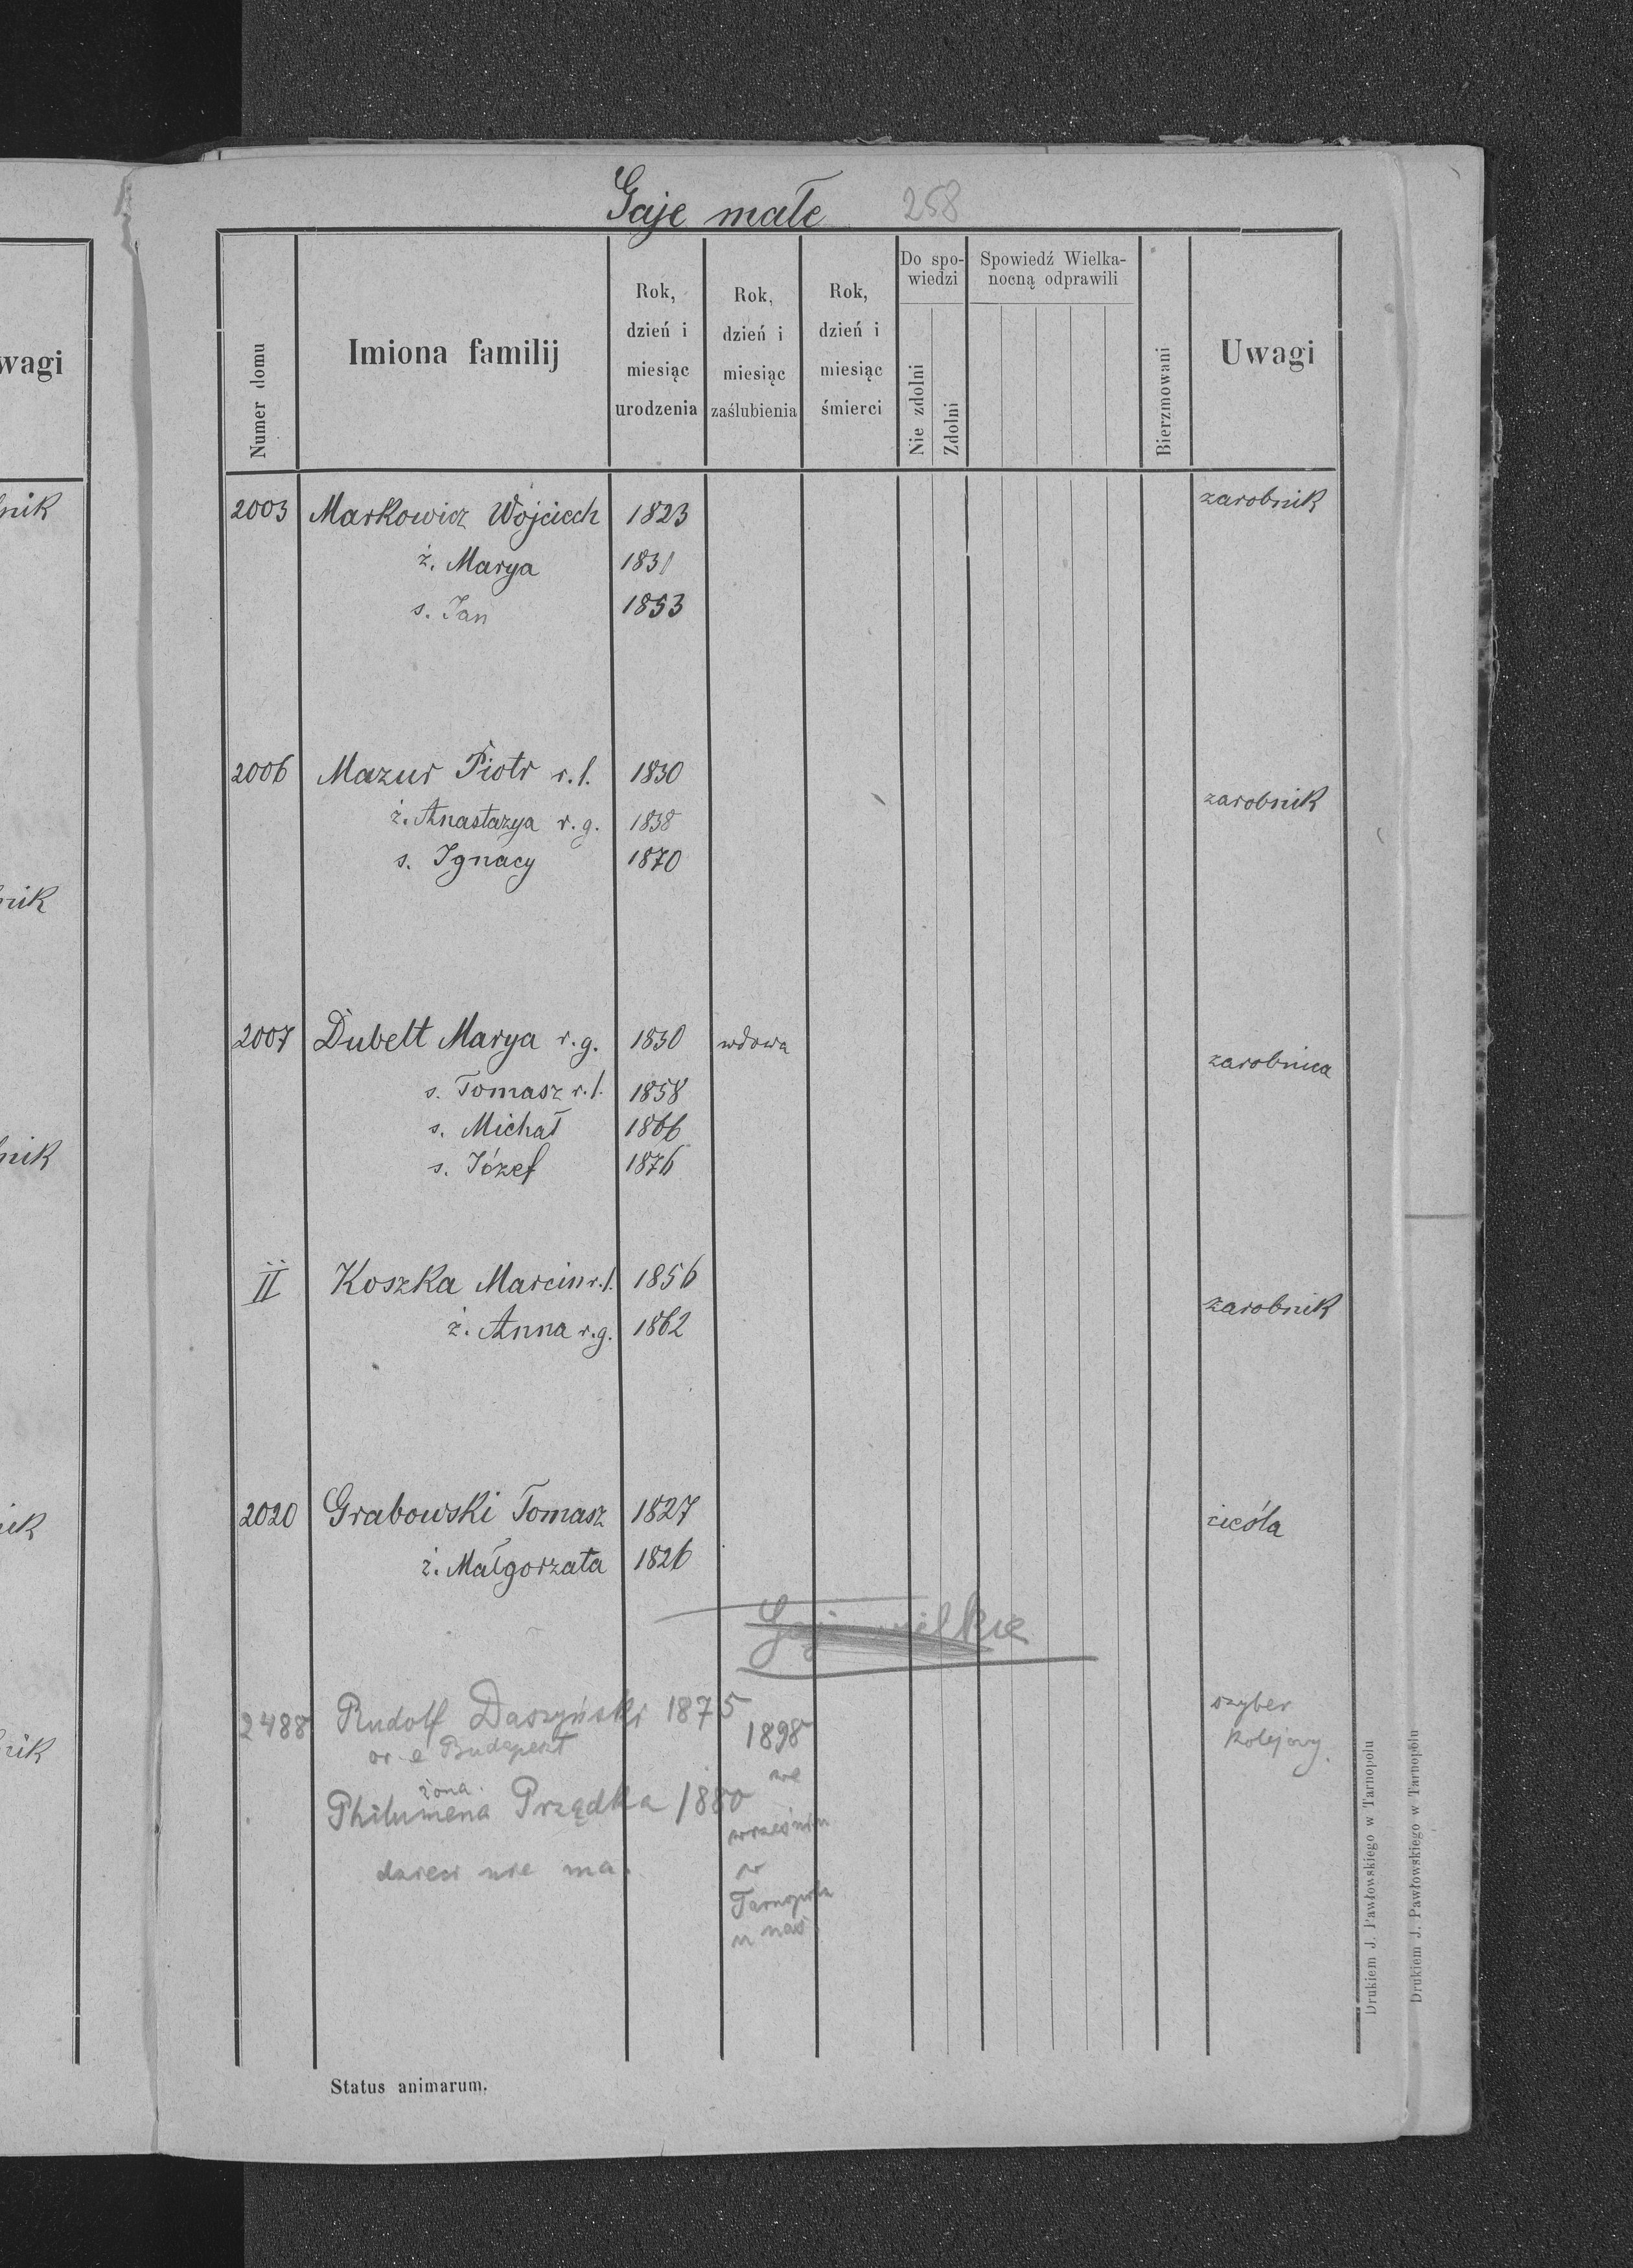 Gaje małe 258
Numer domu
Imiona familij
Rok, dzień i miesiąc urodzenia
Rok, dzień i miesiąc zaślubienia
Rok, dzień i miesiąc śmierci
Do spo-
wiedzi
Nie zdolni
Zdolni
Spowiedź Wielka-
nocną odprawili
Bierzmowani
Uwagi
wagi
2003 Markowicz Wojciech 1823 zarobnik
ż. Marya 1831
s. Jan 1853
2006 Mazur Piotr r. l. 1830 zarobnik
ż. Anastazya r. g. 1838
s. Ignacy 1870
2007 Dubelt Marya r. g. 1830 wdowa zarobnica
s. Tomasz r. l. 1858
s. Michał 1866
s. Józef 1876
II Koszka Marcin r. l. 1856 zarobnik
ż. Anna r. g. 1862
2020 Grabowski Tomasz 1827 cieśla
ż. Małgorzata 1826
2488 Rudolf Daszyński 1875 1898 szyber
Budapeszt kolejowy.
żona we
Philumena Prządka 1880 wrześniu
dzieci nie ma. w
Tarnopolu
u nas.
Status animarum.
Drukiem J. Pawłowskiego w Tarnopolu
Drukiem J. Pawłowskiego w Tarnopolu